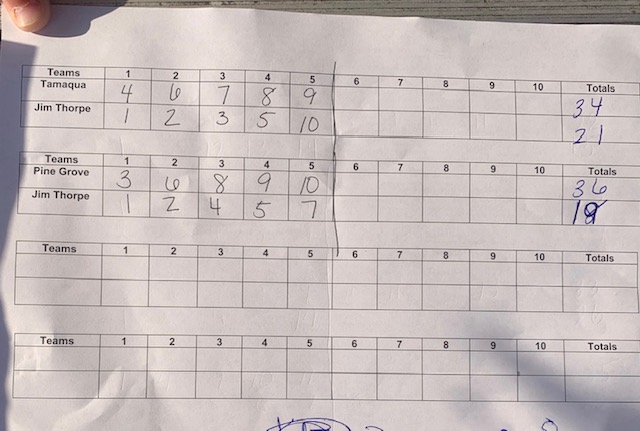 Teams 1 2 3 4 5 6 7 8 9 10 Totals
Tamaqua 4 6 7 8 9 34
Jim Thorpe 1 2 3 5 10 21
Teams 1 2 3 4 5 6 7 8 9 10 Totals
Pine Grove 3 6 8 9 10 36
Jim Thorpe 1 2 4 5 7 19
Teams 1 2 3 4 5 6 7 8 9 10 Totals
Teams 1 2 3 4 5 6 7 8 9 10 Totals